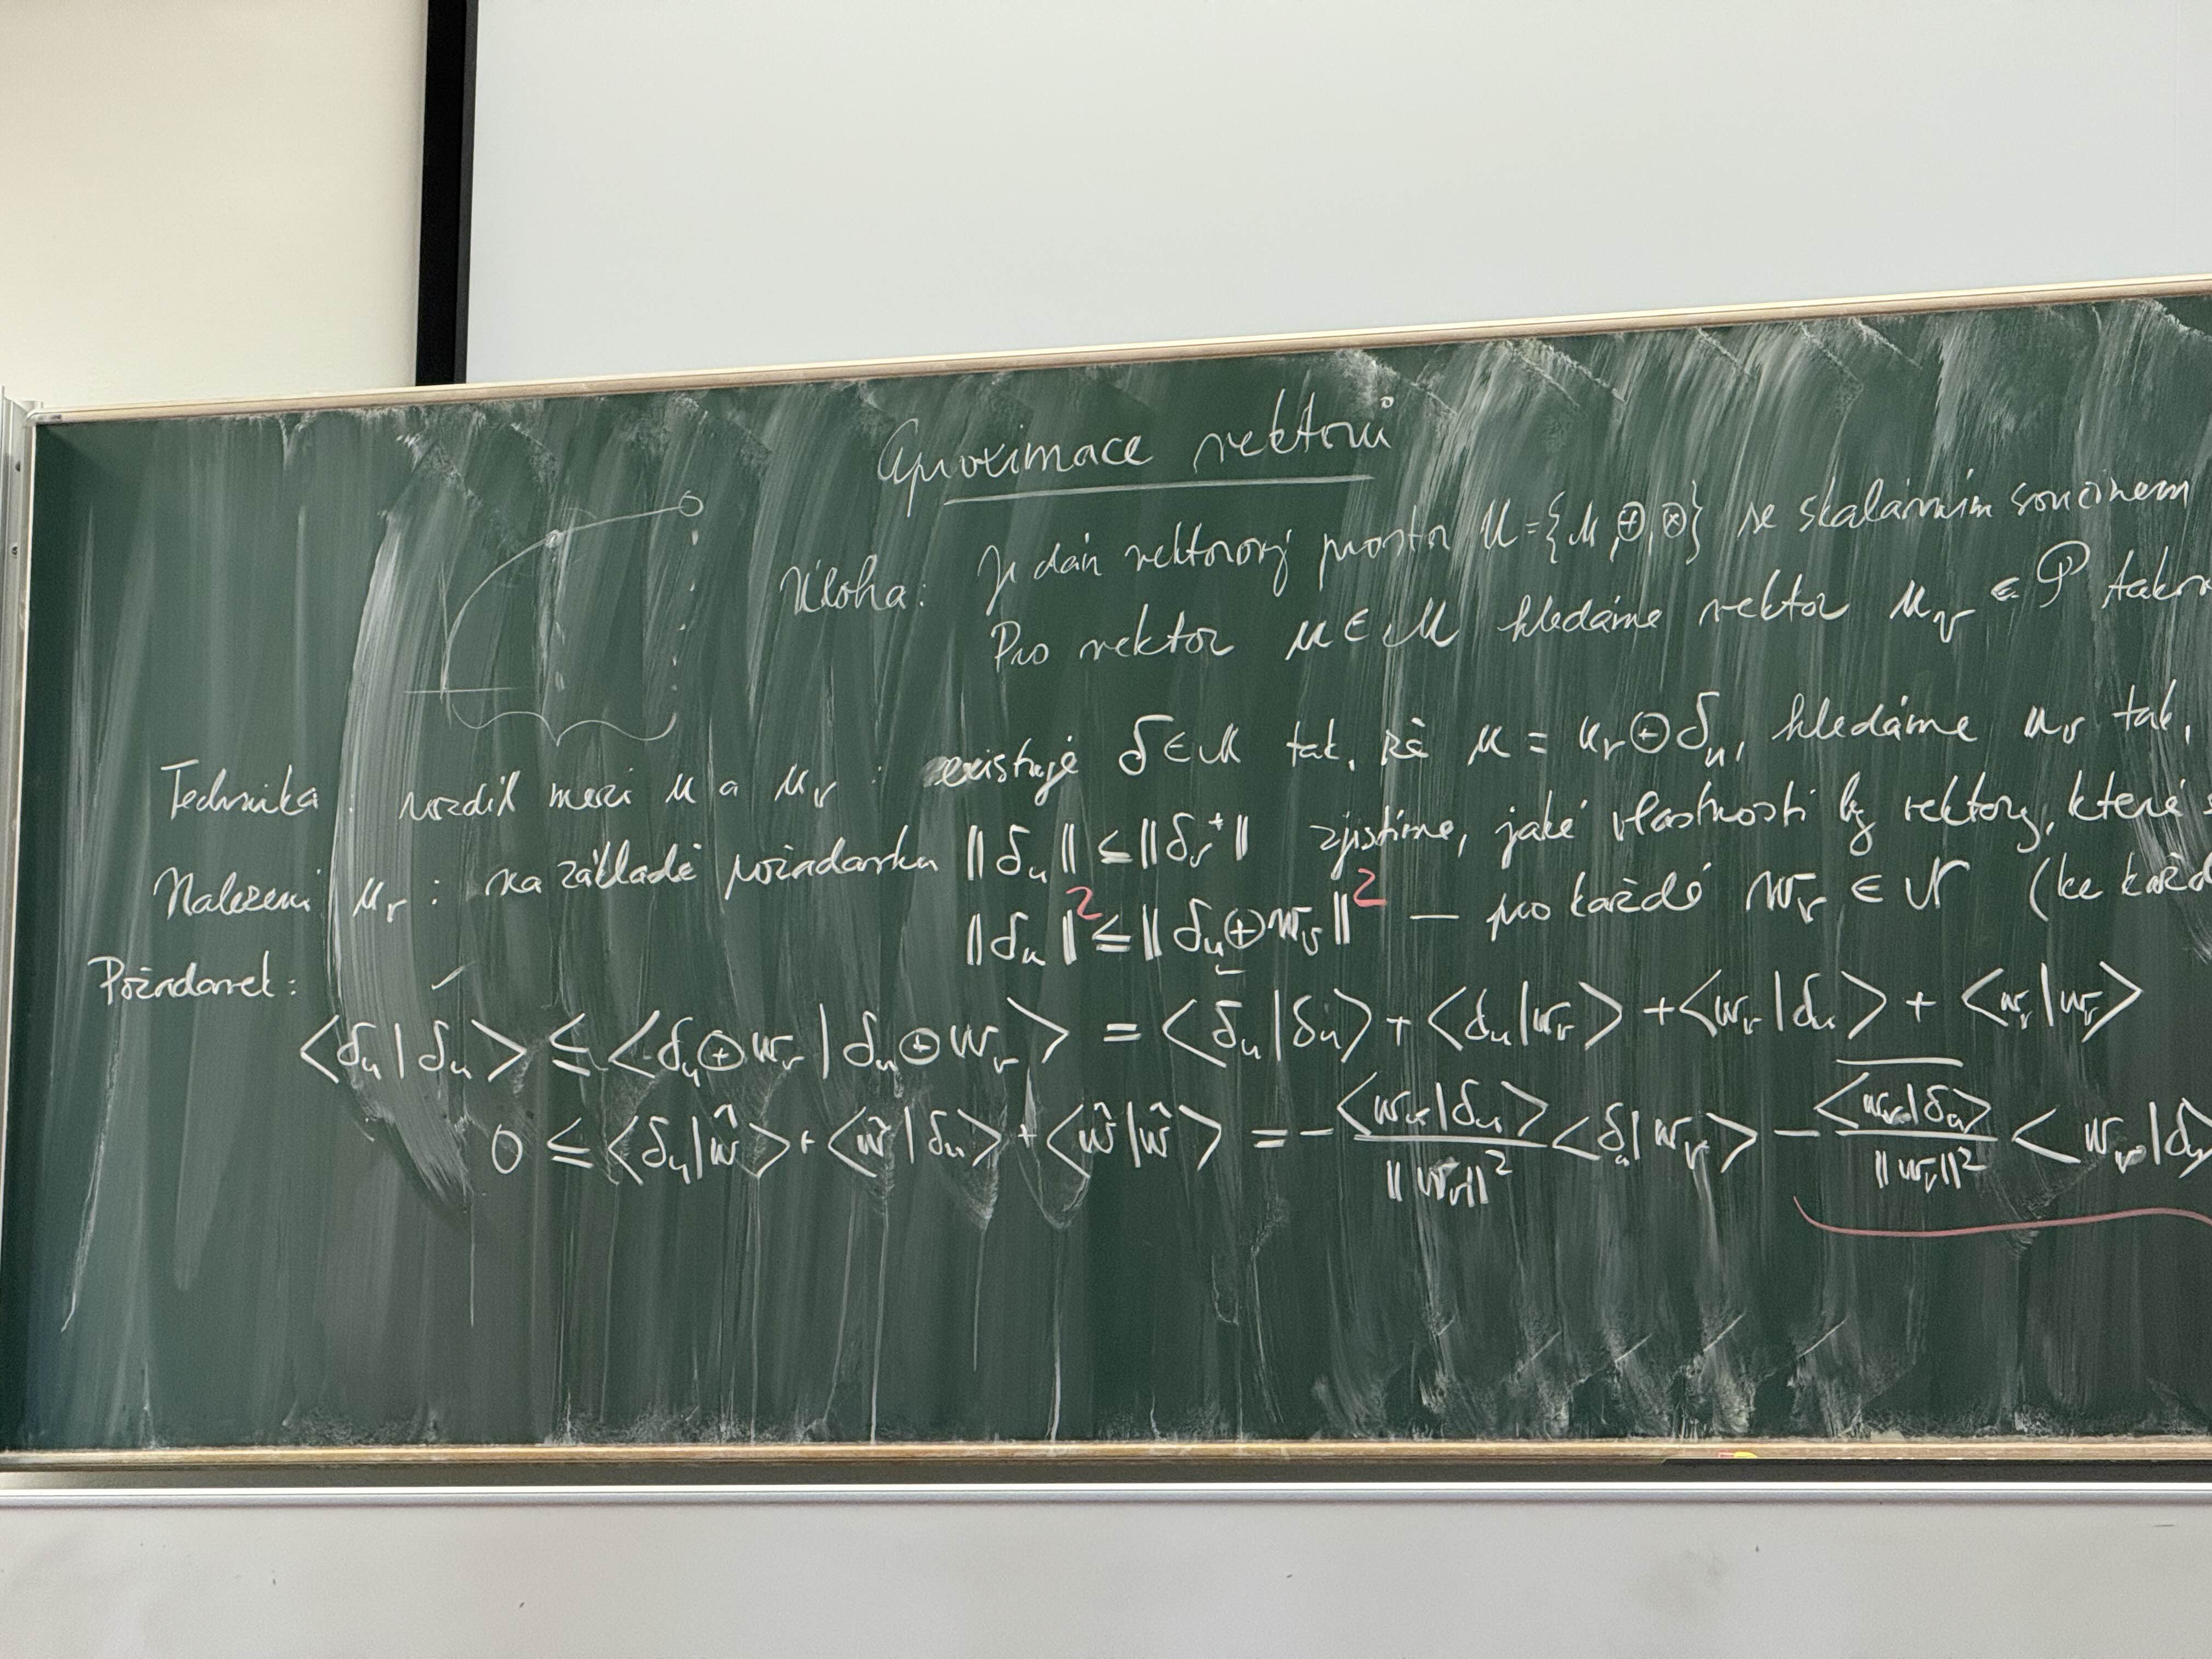 Aproximace vektorů
Úloha: Je dán vektorový prostor U = {M, ⊕, ⊗} se skalárním součinem
Pro vektor u ∈ U hledáme vektor u_v ∈ P
Technika: rozdíl mezi u a u_v : existuje δ ∈ U tak, že u = u_v ⊕ δ_u, hledáme u_v tak,
Nalezení u_v : na základě požadavku ||δ_u|| ≤ ||δ_v^+|| zjistíme, jaké vlastnosti by vektory, které
||δ_u||² ≤ ||δ_u ⊕ w_v||² — pro každé w_v ∈ V (ke každé
Požadavek:
<δ_u|δ_u> ≤ <δ_u ⊕ w_v | δ_u ⊕ w_v> = <δ_u|δ_u> + <δ_u|w_v> + <w_v|δ_u> + <w_v|w_v>
0 ≤ <δ_u|ŵ> + <ŵ|δ_u> + <ŵ|ŵ> = - <w_v|δ_u>/||w_v||² <δ_u|w_v> - \overline{<w_v|δ_u>}/||w_v||² <w_v|δ_u